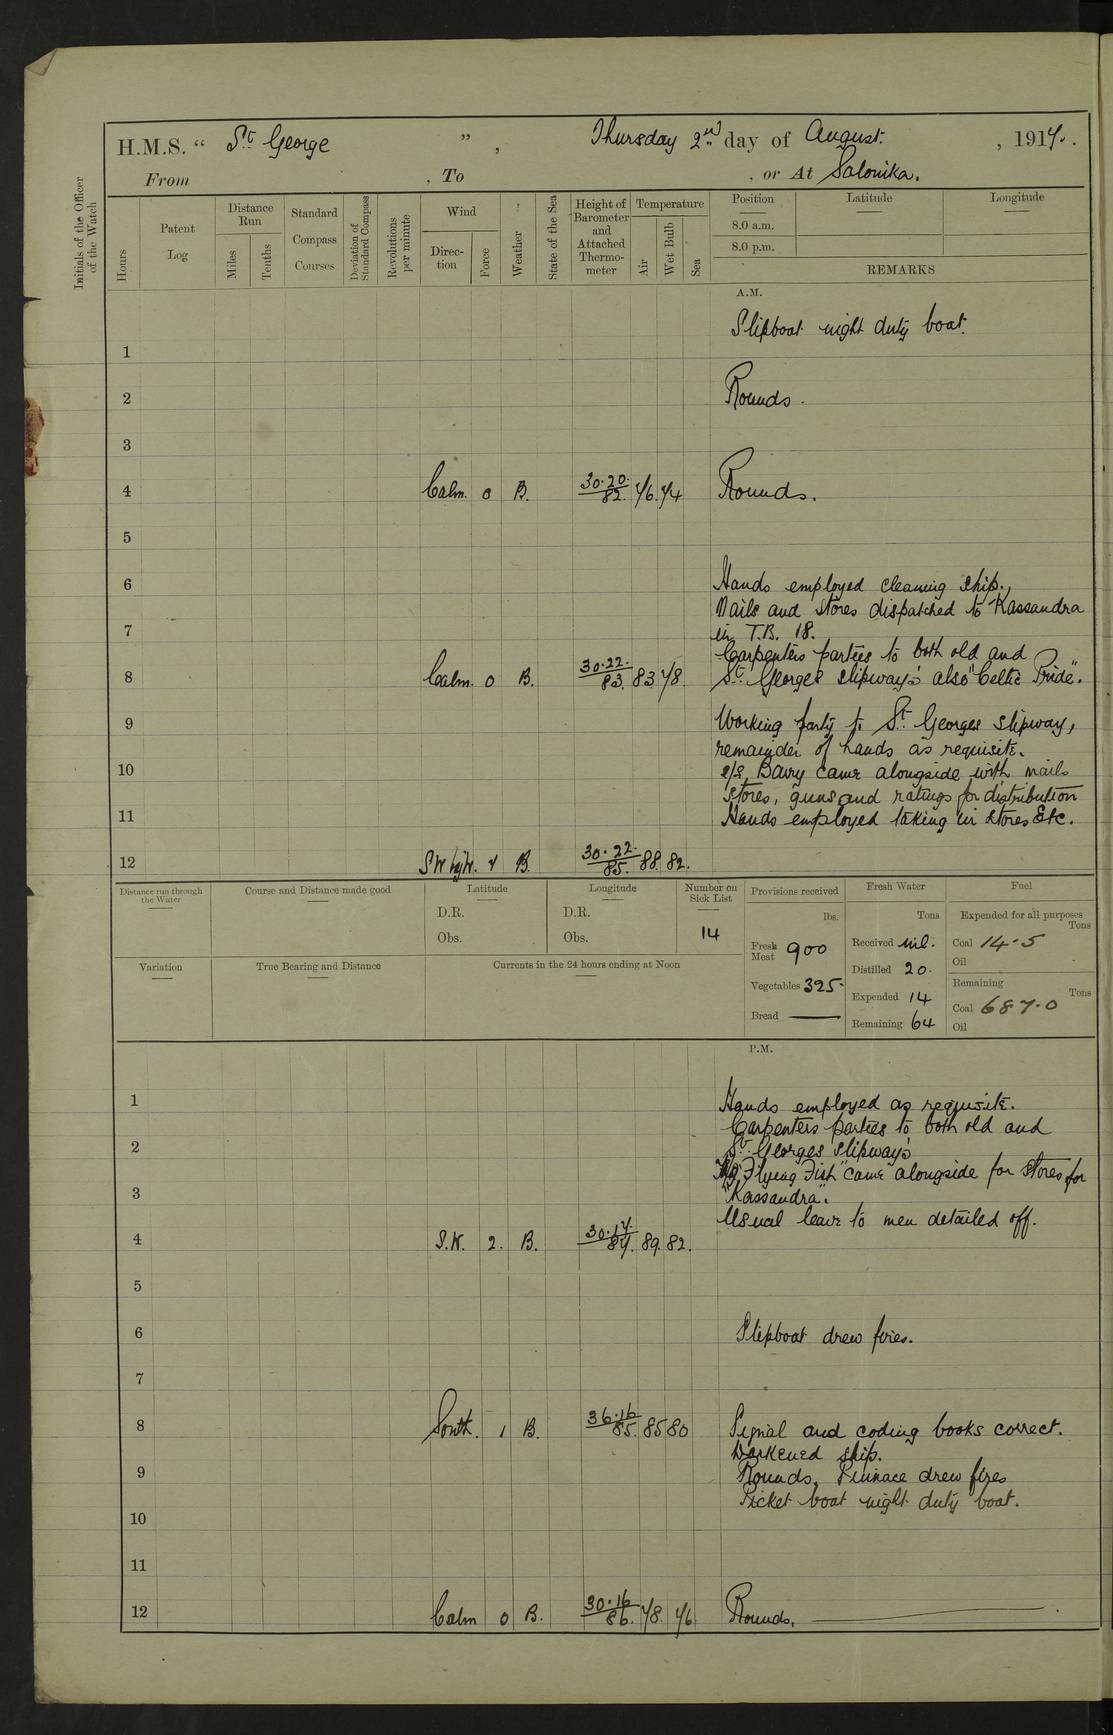 H.M.S. “ St George ” , Thursday 2nd day of August. , 1917.
From , To , or At Salonika.
Initials of the Officer of the Watch
Hours
Patent Log
Distance Run
Miles
Tenths
Standard Compass Courses
Deviation of Standard Compass
Revolutions per minute
Wind
Direction
Force
Weather
State of the Sea
Height of Barometer and Attached Thermometer
Temperature
Air
Wet Bulb
Sea
Position
Latitude
Longitude
8.0 a.m.
8.0 p.m.
REMARKS
A.M.
Slipboat night duty boat.
1
2 Rounds.
3
4 Calm. 0 B. 30.20. 82. 76. 74 Rounds.
5
6 Hands employed cleaning ship.
Mails and stores dispatched to Kassandra
7 in T.B. 18.
Carpenters parties to both old and
8 Calm. 0 B. 30.22. 83. 83. 78 St. Georges slipways also "Celtic Pride".
9 Working party to St Georges slipway,
remainder of hands as requisite.
10 s/s Barry came alongside with mails
stores, guns and ratings for distribution
11 Hands employed taking in stores Etc.
12 B. 30.22. 85. 88. 82.
Distance run through the Water
Course and Distance made good
Latitude
D.R.
Obs.
Longitude
D.R.
Obs.
Number on Sick List
14
Provisions received
lbs.
Fresh Meat 900
Vegetables 325
Bread —
Fresh Water
Tons
Received nil.
Distilled 20.
Expended 14
Remaining 64
Fuel
Expended for all purposes
Tons
Coal 14.5
Oil
Remaining
Tons
Coal 687.0
Oil
Variation
True Bearing and Distance
Currents in the 24 hours ending at Noon
P.M.
1 Hands employed as requisite.
Carpenters parties to both old and
2 St. Georges slipways
"Flying Fish" came alongside for stores for
3 "Kassandra".
Usual leave to men detailed off.
4 2. B. 30.17. 87. 89. 82.
5
6 Slipboat drew fires.
7
8 South. 1 B. 36.16 85. 85 80 Signal and coding books correct.
Darkened ship.
9 Rounds. Pinnace drew fires
Picket boat night duty boat.
10
11
12 Calm 0 B. 30.16 86. 78. 76 Rounds.